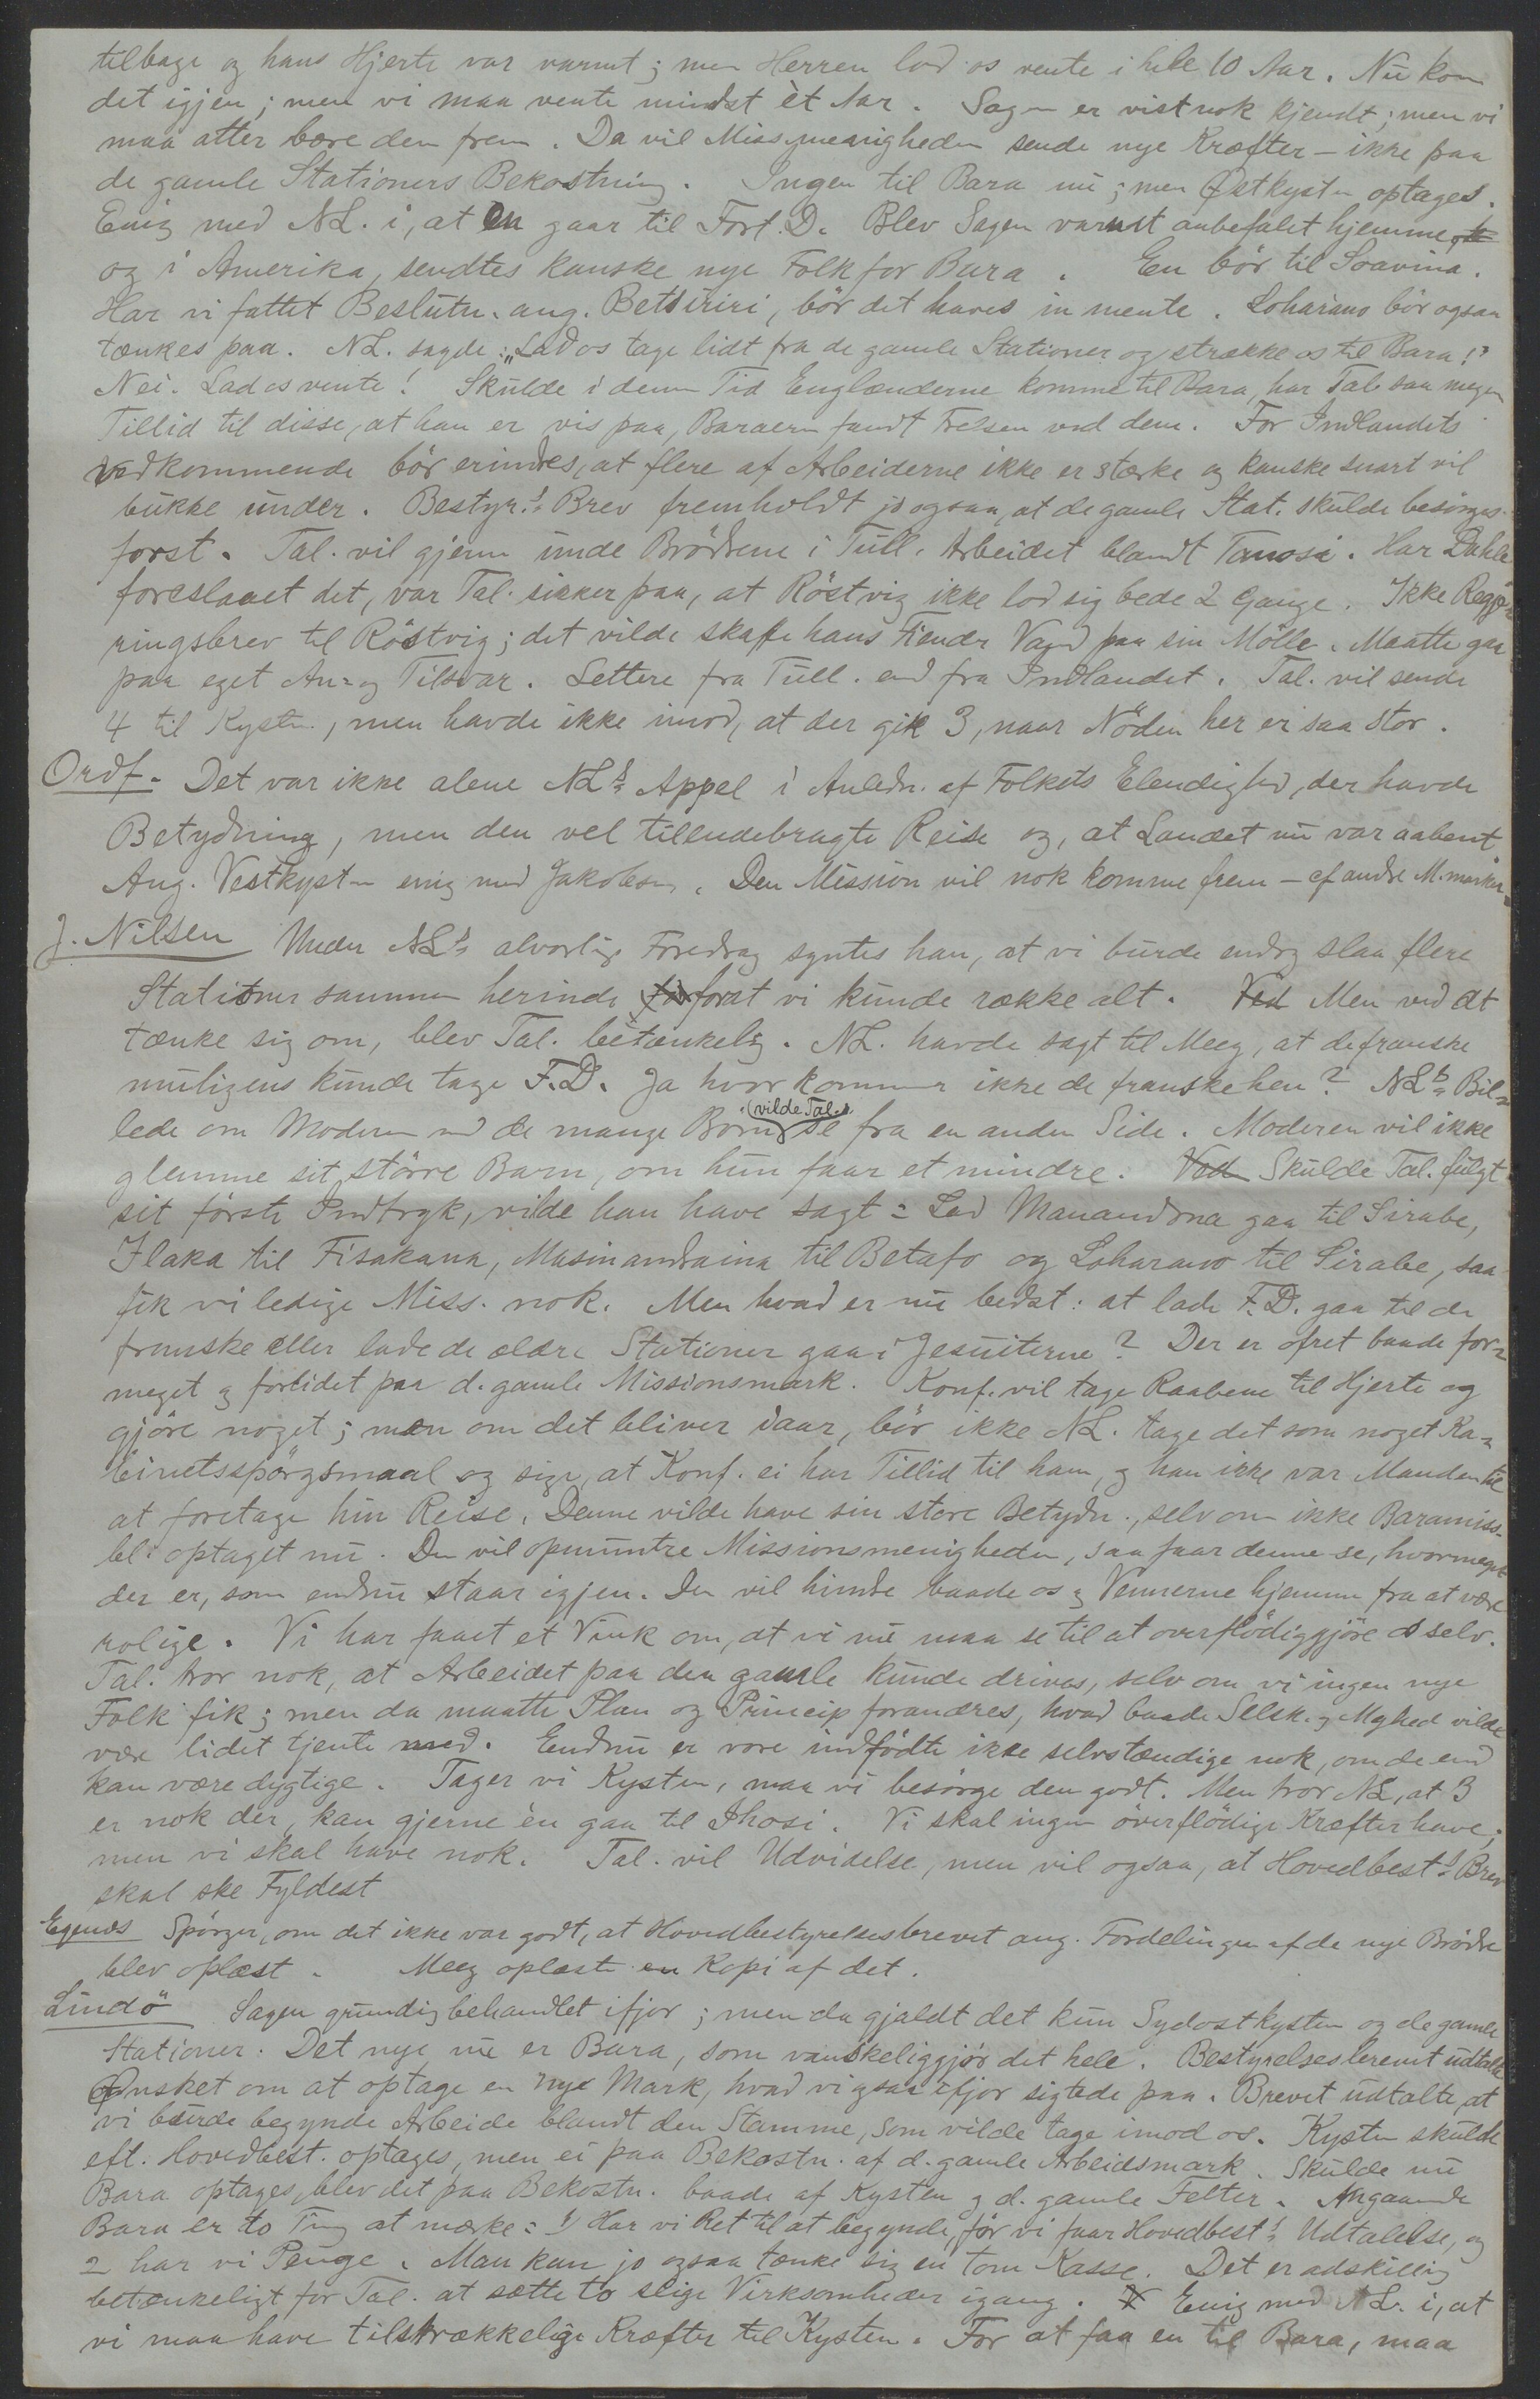 tilbage og hans Hjerte var varmt; men Herren lod os vente i hele 10 Aar. Nu kom
det igjen; men vi maa vente mindst èt Aar. Sagen er vistnok kjendt; men vi
maa atter bære den frem. Da vil Missmenigheden sende nye Kræfter – ikke paa
de gamle Stationers Bekostning. Ingen til Bara nu; men Østkysten optages.
Enig med NL. i, at en gaar til Fort. D. Blev Sagen varmt anbefalet hjemme
og i Amerika, sendtes kanske nye Folk for Bara. En bör til Soavina.
Har vi fattet Beslutn. ang. Betsiriri, bör det haves in mente. Loharano bör ogsaa
tænkes paa. NL. sagde: „Lad os tage lidt fra de gamle Stationer og strække os til Bara!"
Nei. Lad os vente! Skulde i denne Tid Englænderne komme til Bara, har Tal. saa megen
Tillid til disse, at han er vis paa, Baraerne fandt Frelsen ved dem. For Indlandets
vedkommende bör erindres, at flere af Arbeiderne ikke er stærke og kanske snart vil
bukke under. Bestyr.s Brev fremholdt jo ogsaa, at de gamle Stat. skulde besörges
forst. Tal. vil gjerne unde Brödrene i Tull. Arbeidet blandt Tanosi. Har Dahle
foreslaaet det, var Tal. sikker paa, at Röstvig ikke lod sig bede 2 Gange. Ikke Regje-
ringsbrev til Röstvig; det vilde skaffe hans Fiender Vand paa sin Mölle. Maatte gaa
paa eget An- og Tilsvar. Lettere fra Tull. end fra Indlandet. Tal. vil sende
4 til Kysten, men havde ikke imod, at der gik 3, naar Nöden her er saa stor.
Ordf. Det var ikke alene NLs Appel i Anledn. af Folkets Elendighed, der havde
Betydning, men den vel tilendebragte Reise og, at Landet nu var aabent.
Ang. Vestkysten enig med Jakobsen. Den Mission vil nok komme frem – af andre M.marker.
J. Nilsen Under NLs alvorlige Foredrag syntes han, at vi burde endog slaa flere
Stationer sammen herinde forat vi kunde række alt. Ved Men ved at
tænke sig om, blev Tal. betænkelig. NL. havde sagt til Meeg, at de franske
muligens kunde tage F.D. Ja hvor kommer ikke de franske hen? NLs Bil-
lede om Moderen med de mange Börn (vilde Tal.) se fra en anden Side. Moderen vil ikke
glemme sit större Barn, om hun faar et mindre. Ved Skulde Tal. fulgt
sit förste Indtryk, vilde han have sagt: Lad Manandona gaa til Sirabe,
Ilaka til Fisakana, Masinandraina til Betafo og Loharano til Sirabe, saa
fik vi ledige Miss. nok. Men hvad er nu bedst: at lade F.D. gaa til de
franske eller lade de ældre Stationer gaa i Jesuiterne? Der er ofret baade for-
meget og forlidet paa d. gamle Missionsmark. Konf. vil tage Raabene til Hjerte og
gjöre noget; men om det bliver iaar, bör ikke NL. tage det som noget Ka-
binetsspörgsmaal og sige, at Konf. ei har Tillid til ham, og han ikke var Manden til
at foretage hin Reise. Denne vilde have sin store Betydn., selv om ikke Baramiss.
bl. optaget nu. Den vil opmuntre Missionsmenigheden, saa faar denne se, hvormeget
der er, som endnu staar igjen. Den vil hindre baade os og Vennerne hjemme fra at være
rolige. Vi har faaet et Vink om, at vi nu maa se til at overflödiggjöre os selv.
Tal. tror nok, at Arbeidet paa den gamle kunde drives, selv om vi ingen nye
Folk fik; men da maatte Plan og Princip forandres, hvad baade Selsk. og Mghed vilde
være lidet tjente med. Endnu er vore indfödte ikke selvstændige nok, om de end
kan være dygtige. Tager vi Kysten, maa vi besörge den godt. Men tror NL, at 3
er nok der, kan gjerne èn gaa til Ihosi. Vi skal ingen overflödige Kræfter have;
men vi skal have nok. Tal. vil Udvidelse, men vil ogsaa, at Hovedbest.s Brev
skal ske Fyldest
Egenæs Spörger, om det ikke var godt, at Hovedbestyrelsesbrevet ang. Fordelingen af de nye Brödre
blev oplæst. Meeg oplæste en Kopi af det.
Lindö Sagen grundig behandlet ifjor; men da gjaldt det kun Sydostkysten og de gamle
Stationer. Det nye nu er Bara, som vanskeliggjör det hele. Bestyrelsesbrevet udtalte
Ønsket om at optage en nye Mark, hvad vi ogsaa ifjor sigtede paa. Brevet udtalte, at
vi burde begynde Arbeide blandt den Stamme, som vilde tage imod os. Kysten skulde
eft. Hovedbest. optages, men ei paa Bekostn. af d. gamle Arbeidsmark. Skulde nu
Bara optages, blev det paa Bekostn. baade af Kysten og d. gamle Felter. Angaaende
Bara er to Ting at mærke: 1) Har vi Ret til at begynde, för vi faar Hovedbest.s Udtalelse, og
2 har vi Penge. Man kan jo ogsaa tænke sig en tom Kasse. Det er adskillig
betænkeligt for Tal. at sætte to slige Virksomheder igang. Enig med NL. i, at
vi maa have tilstrækkelige Kræfter til Kysten. For at faa en til Bara, maa